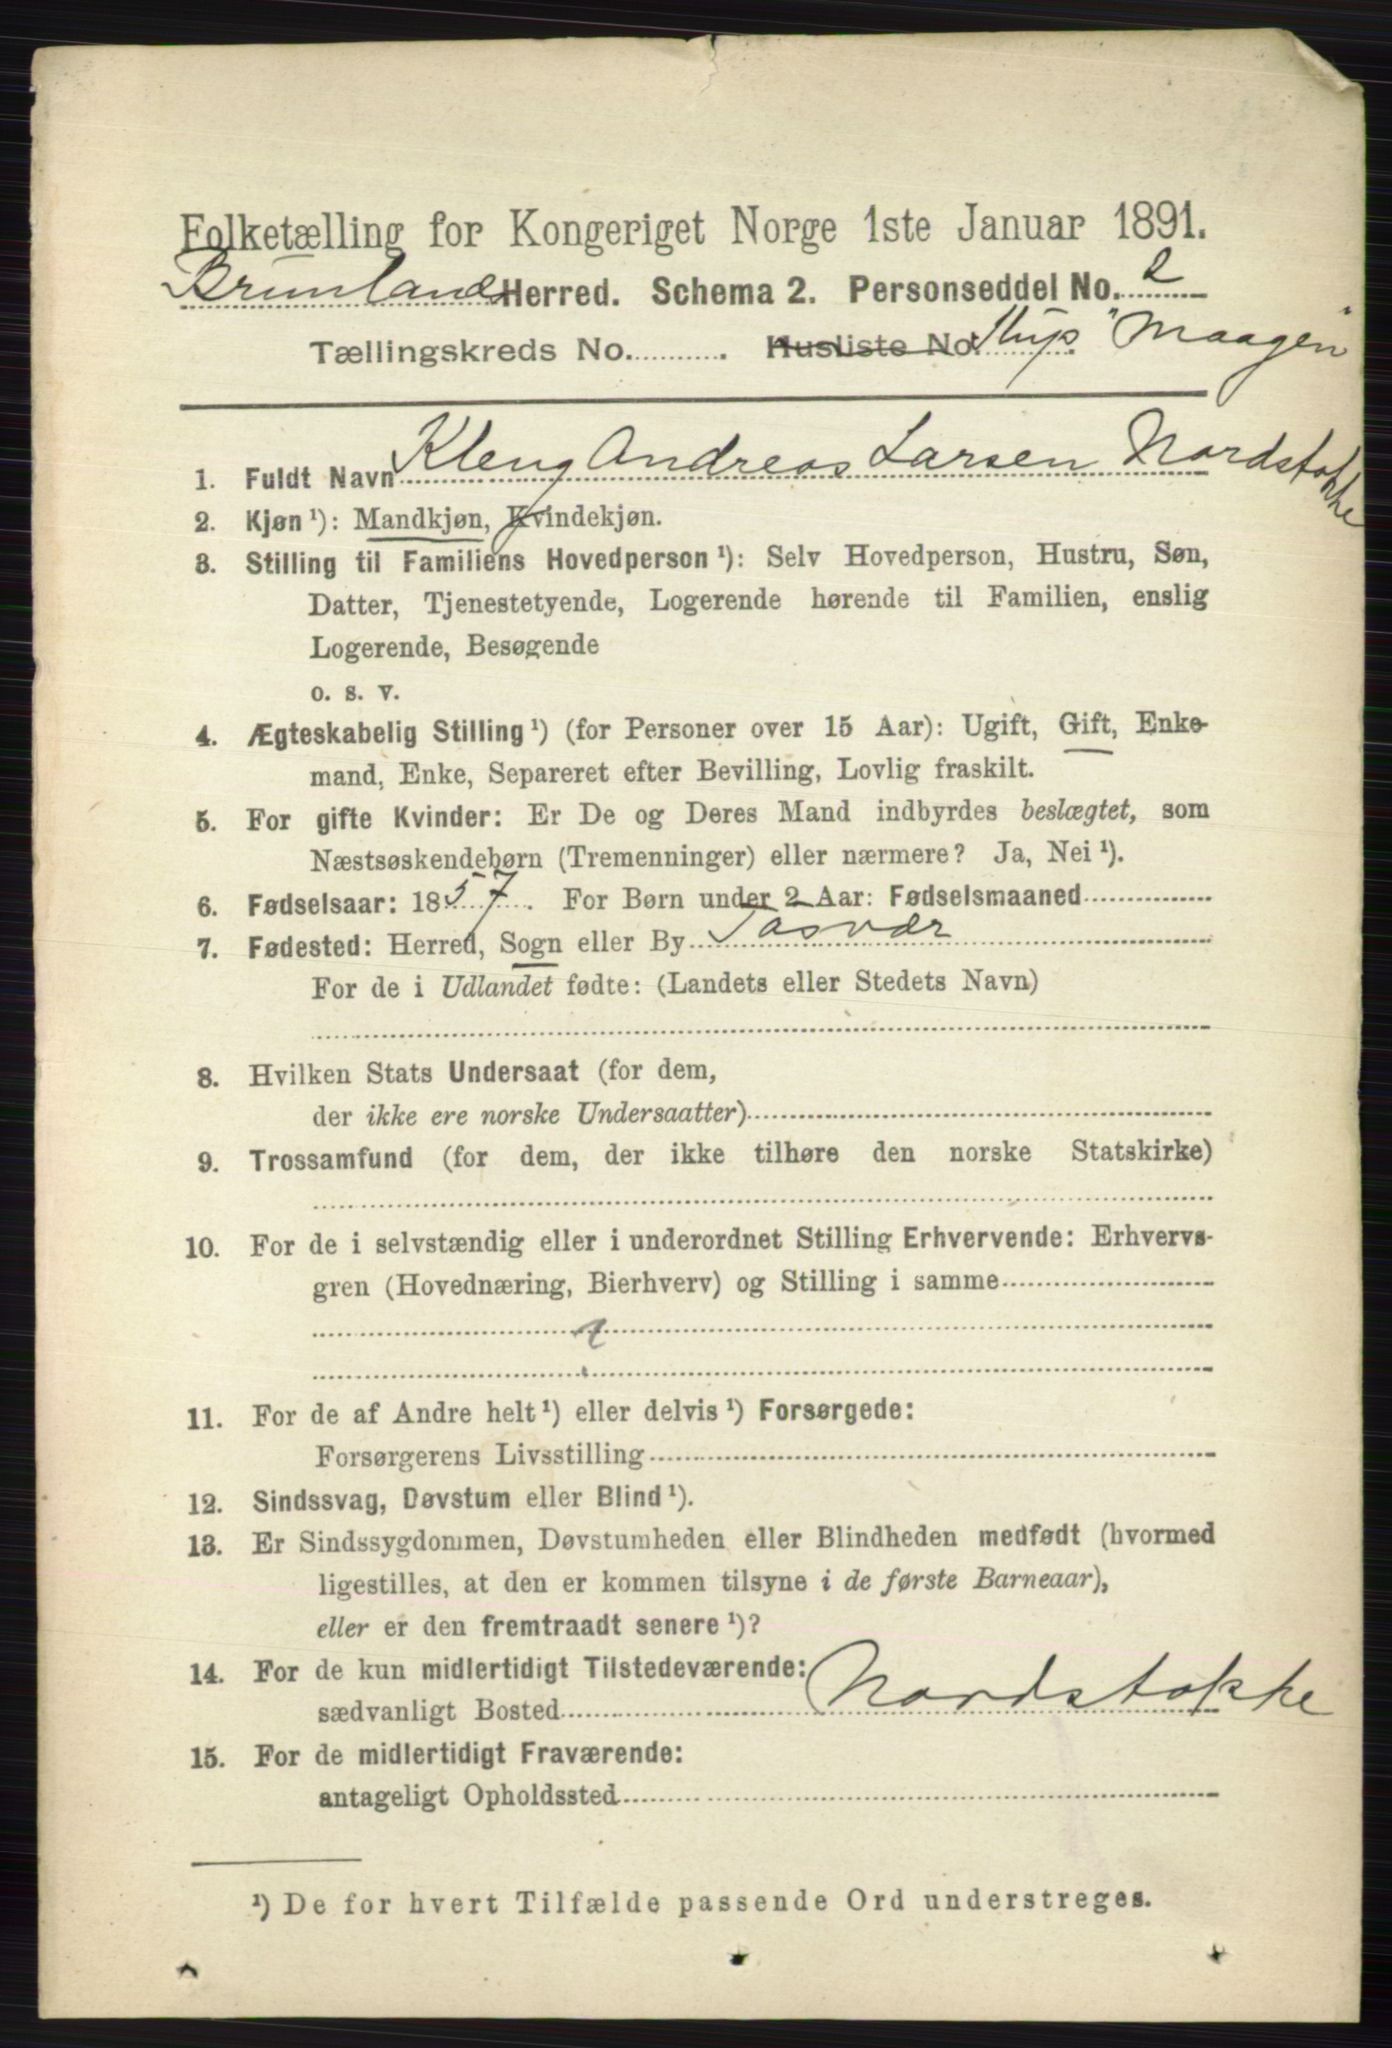 Folketælling for Kongeriget Norge 1ste Januar 1891.
Brunlanes Herred. Schema 2. Personseddel No. 2
Tællingskreds No. . Husliste No. "Maagen"
1. Fuldt Navn Kleng Andreas Larsen Nordstokke
2. Kjøn ¹): Mandkjøn, Kvindekjøn.
3. Stilling til Familiens Hovedperson ¹): Selv Hovedperson, Hustru, Søn,
Datter, Tjenestetyende, Logerende hørende til Familien, enslig
Logerende, Besøgende
o. s. v.
4. Ægteskabelig Stilling ¹) (for Personer over 15 Aar): Ugift, Gift, Enke-
mand, Enke, Separeret efter Bevilling, Lovlig fraskilt.
5. For gifte Kvinder: Er De og Deres Mand indbyrdes beslægtet, som
Næstsøskendebørn (Tremenninger) eller nærmere? Ja, Nei ¹).
6. Fødselsaar: 1857. For Børn under 2 Aar: Fødselsmaaned
7. Fødested: Herred, Sogn eller By
For de i Udlandet fødte: (Landets eller Stedets Navn)
8. Hvilken Stats Undersaat (for dem,
der ikke ere norske Undersaatter)
9. Trossamfund (for dem, der ikke tilhøre den norske Statskirke)
10. For de i selvstændig eller i underordnet Stilling Erhvervende: Erhvervs-
gren (Hovednæring, Bierhverv) og Stilling i samme
11. For de af Andre helt ¹) eller delvis ¹) Forsørgede:
Forsørgerens Livsstilling
12. Sindssvag, Døvstum eller Blind ¹).
13. Er Sindssygdommen, Døvstumheden eller Blindheden medfødt (hvormed
ligestilles, at den er kommen tilsyne i de første Barneaar),
eller er den fremtraadt senere ¹)?
14. For de kun midlertidigt Tilstedeværende:
sædvanligt Bosted Nordstokke
15. For de midlertidigt Fraværende:
antageligt Opholdssted
¹) De for hvert Tilfælde passende Ord understreges.